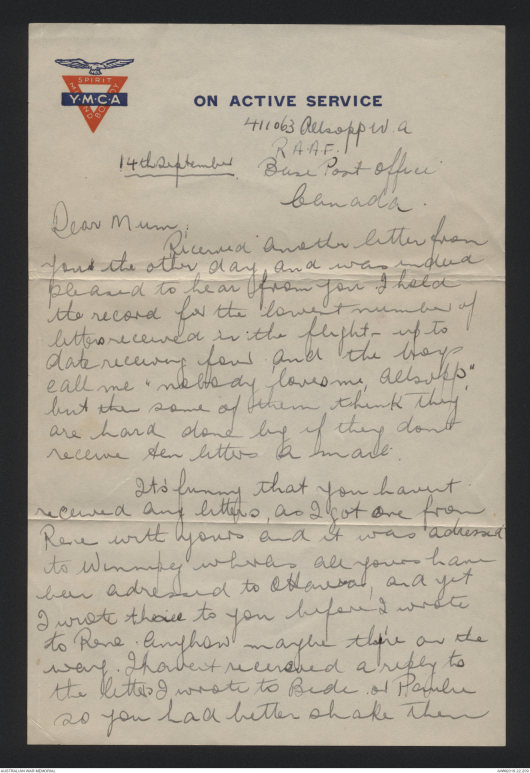 SPIRIT
Y·M·C·A
MIND
BODY
ON ACTIVE SERVICE
411063 Allsopp W. A
R.A.A.F.
14th September
Base Post Office
Canada.
Dear Mum,
Received another letter from
yous the other day and was indeed
pleased to hear from you I hold
the record for the lowest number of
letters received in the flight - up to
date receiving four and the boys
call me "nobody lovesme, Allsopp"
but the some of them think they
are hard done by if they dont
receive ten letters a mail.
It's funny that you havent
received any letters, as I got one from
Rene with yours and it was adressed
to Winnipeg wheras all yours have
been adressed to Ottawa, and yet
I wrote to you before I wrote
to Rene. Anyhow maybe on the
way. I havent received a reply to
the letters I wrote to Bede or
so you had better shake them
AUSTRALIAN WAR MEMORIAL